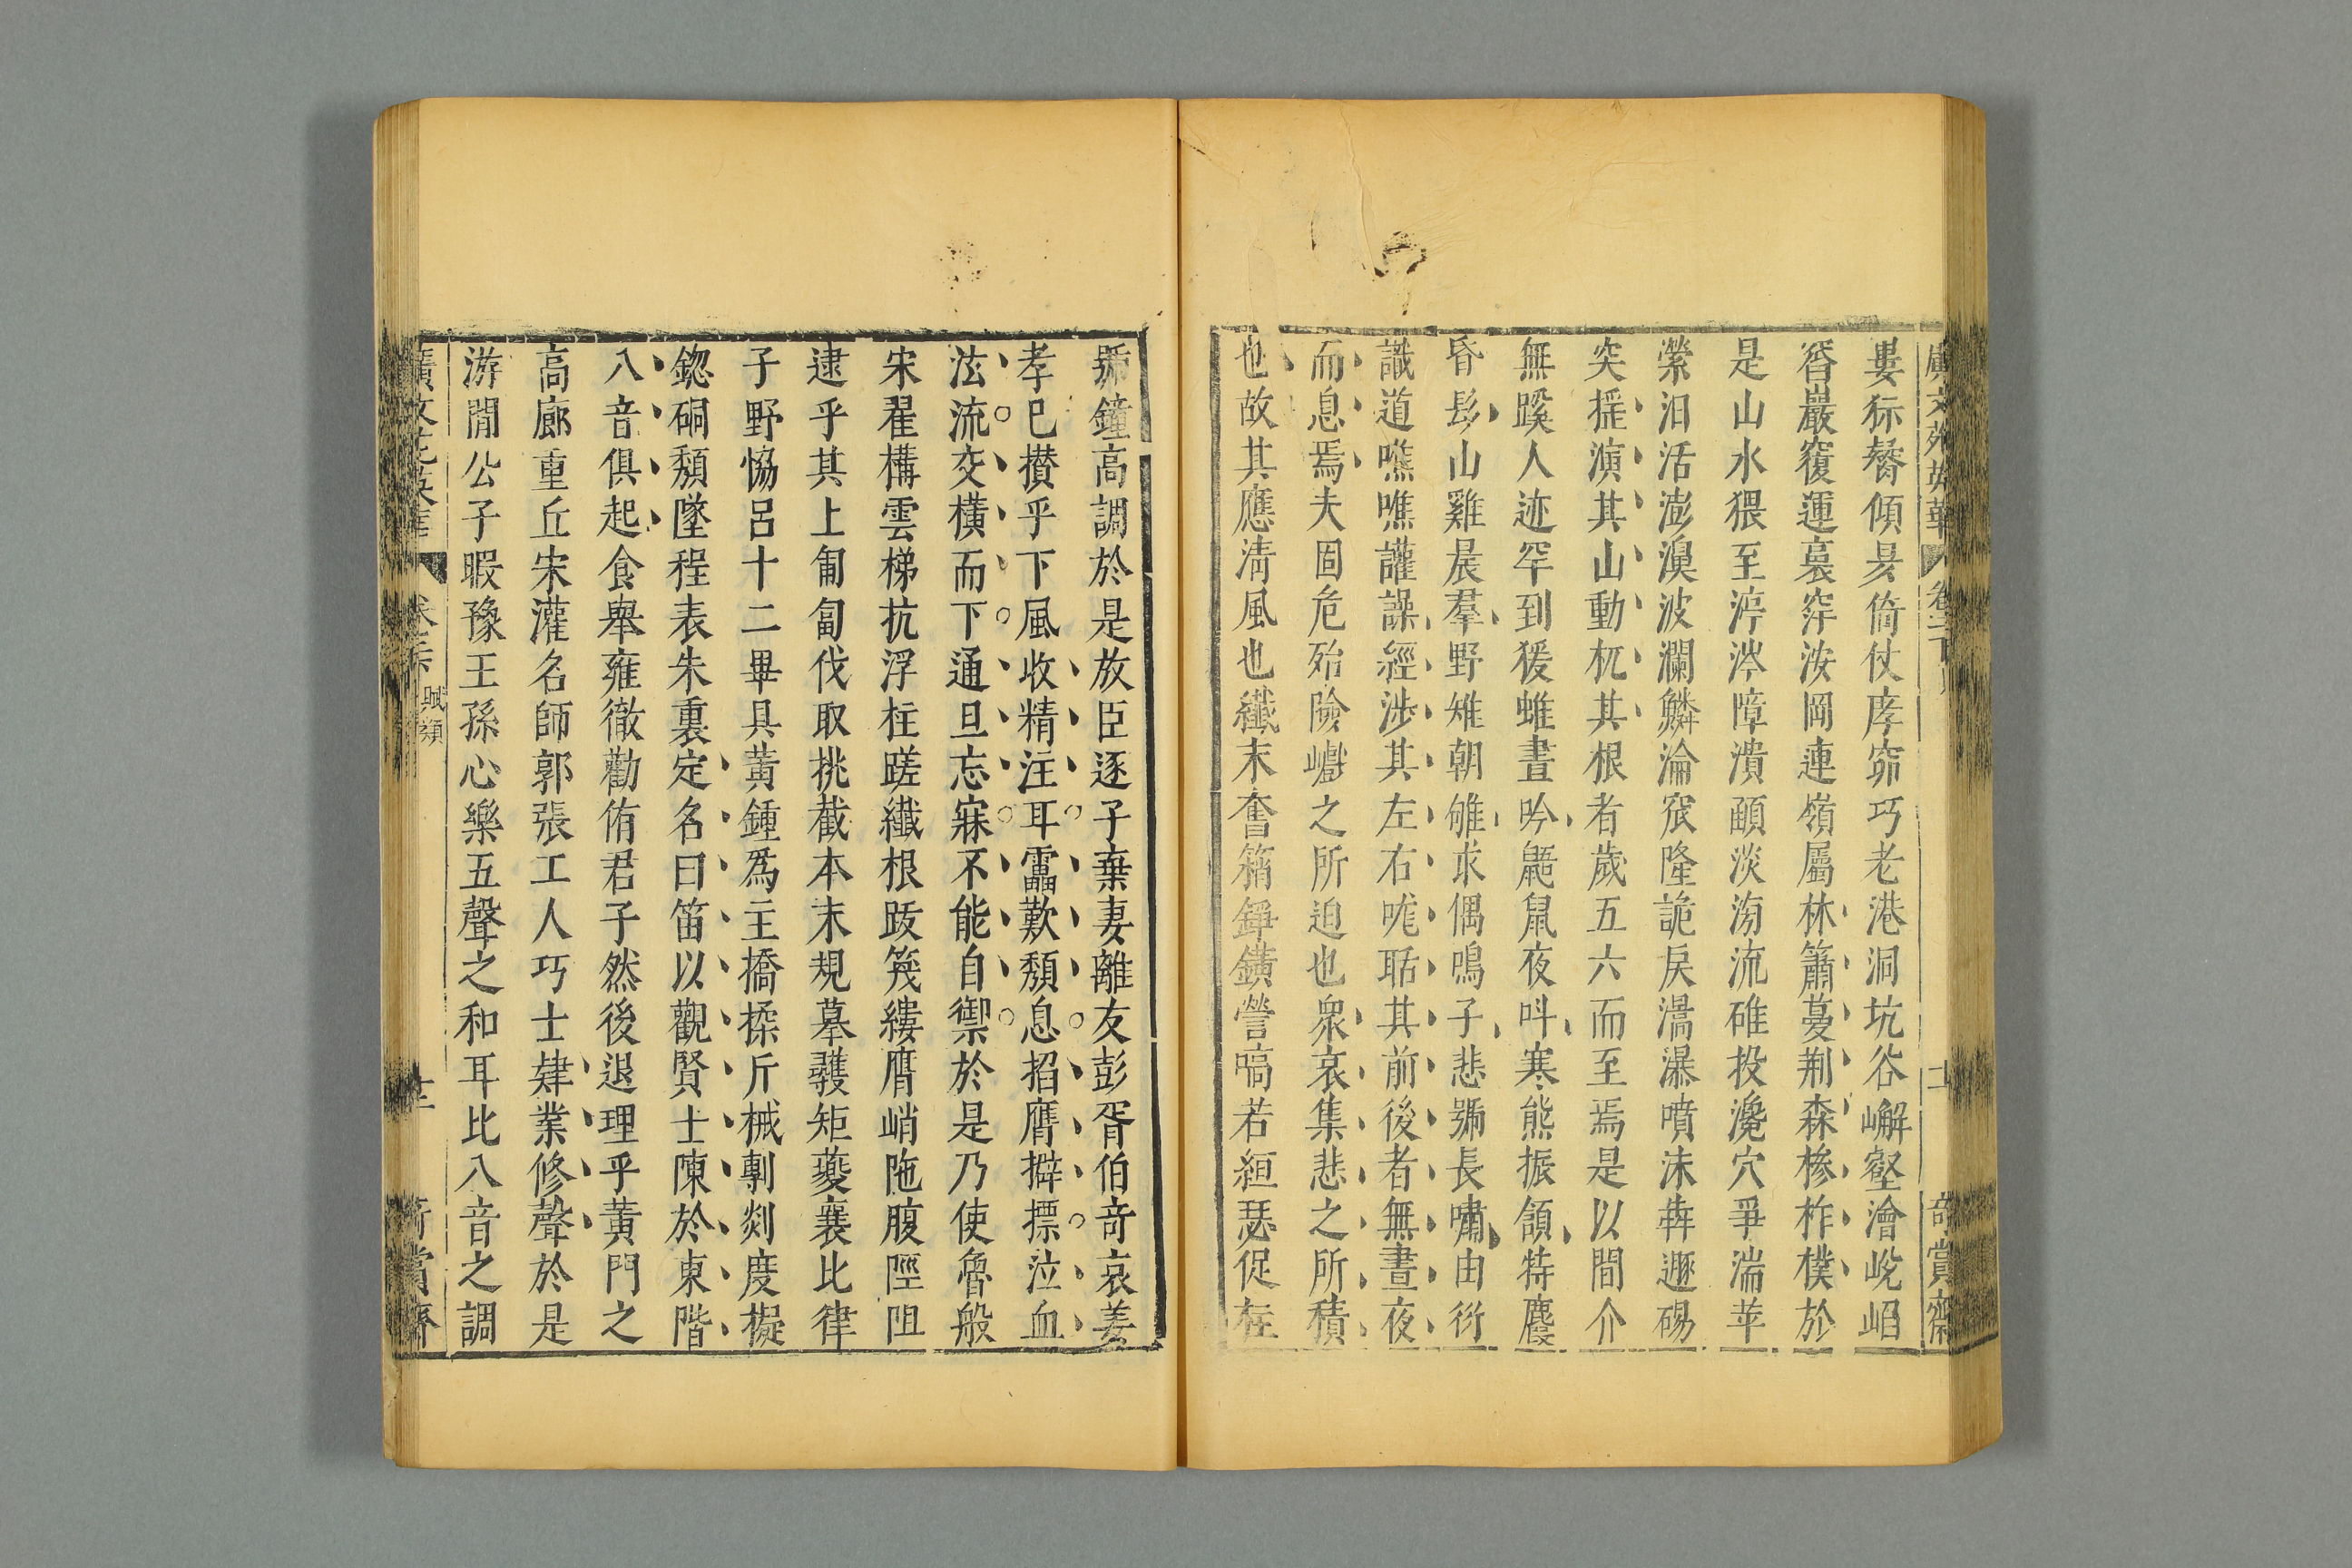 廣文苑英華 卷二下 士 奇賞齋
婁窌䂷傾昃倚伏庨窌巧老港洞坑谷嶰壑澮㟋㟏
窞巖窟運裛窏洝岡連嶺屬林簫蔓荆森槮柞樸於
是山水猥至渟涔障潰頤淡滂流碓投瀺穴爭湍苹
縈汨活澎濞波瀾鱗淪窊隆詭戾瀥瀑噴沫犇遯碭
突搖演其山動杌其根者歲五六而至焉是以間介
無蹊人迹罕到猨蜼晝吟鼯鼠夜叫寒熊振頷特麚
昏髟山雞晨羣野雉朝雊求偶鳴子悲號長嘯由衍
識道噍噍讙譟經涉其左右哤聒其前後者無晝夜
而息焉夫固危殆險巇之所迫也衆哀集悲之所積
也故其應清風也纖末奮蕱錚鐄謍嗃若絙瑟促柱
號鐘高調於是放臣逐子棄妻離友彭胥伯奇哀姜
孝巳攅乎下風收精注耳靁歎頹息掐膺擗摽泣血
泫流交橫而下通旦忘寐不能自禦於是乃使魯般
宋翟構雲梯抗浮柱蹉纖根跋篾縷膺峭陁腹陘阻
逮乎其上匍匐伐取挑截本末規摹彠矩夔襄比律
子野恊呂十二畢具黃鍾爲主撟揉斤械剸剡度擬
鍯硐頹墜程表朱裏定名曰笛以觀賢士陳於東階
八音俱起食舉雍徹勸侑君子然後退理乎黃門之
高廊重丘宋灌名師郭張工人巧士肄業修聲於是
游閒公子暇豫王孫心樂五聲之和耳比八音之調
廣文苑英華 卷二下 賦類 十二 奇賞齋